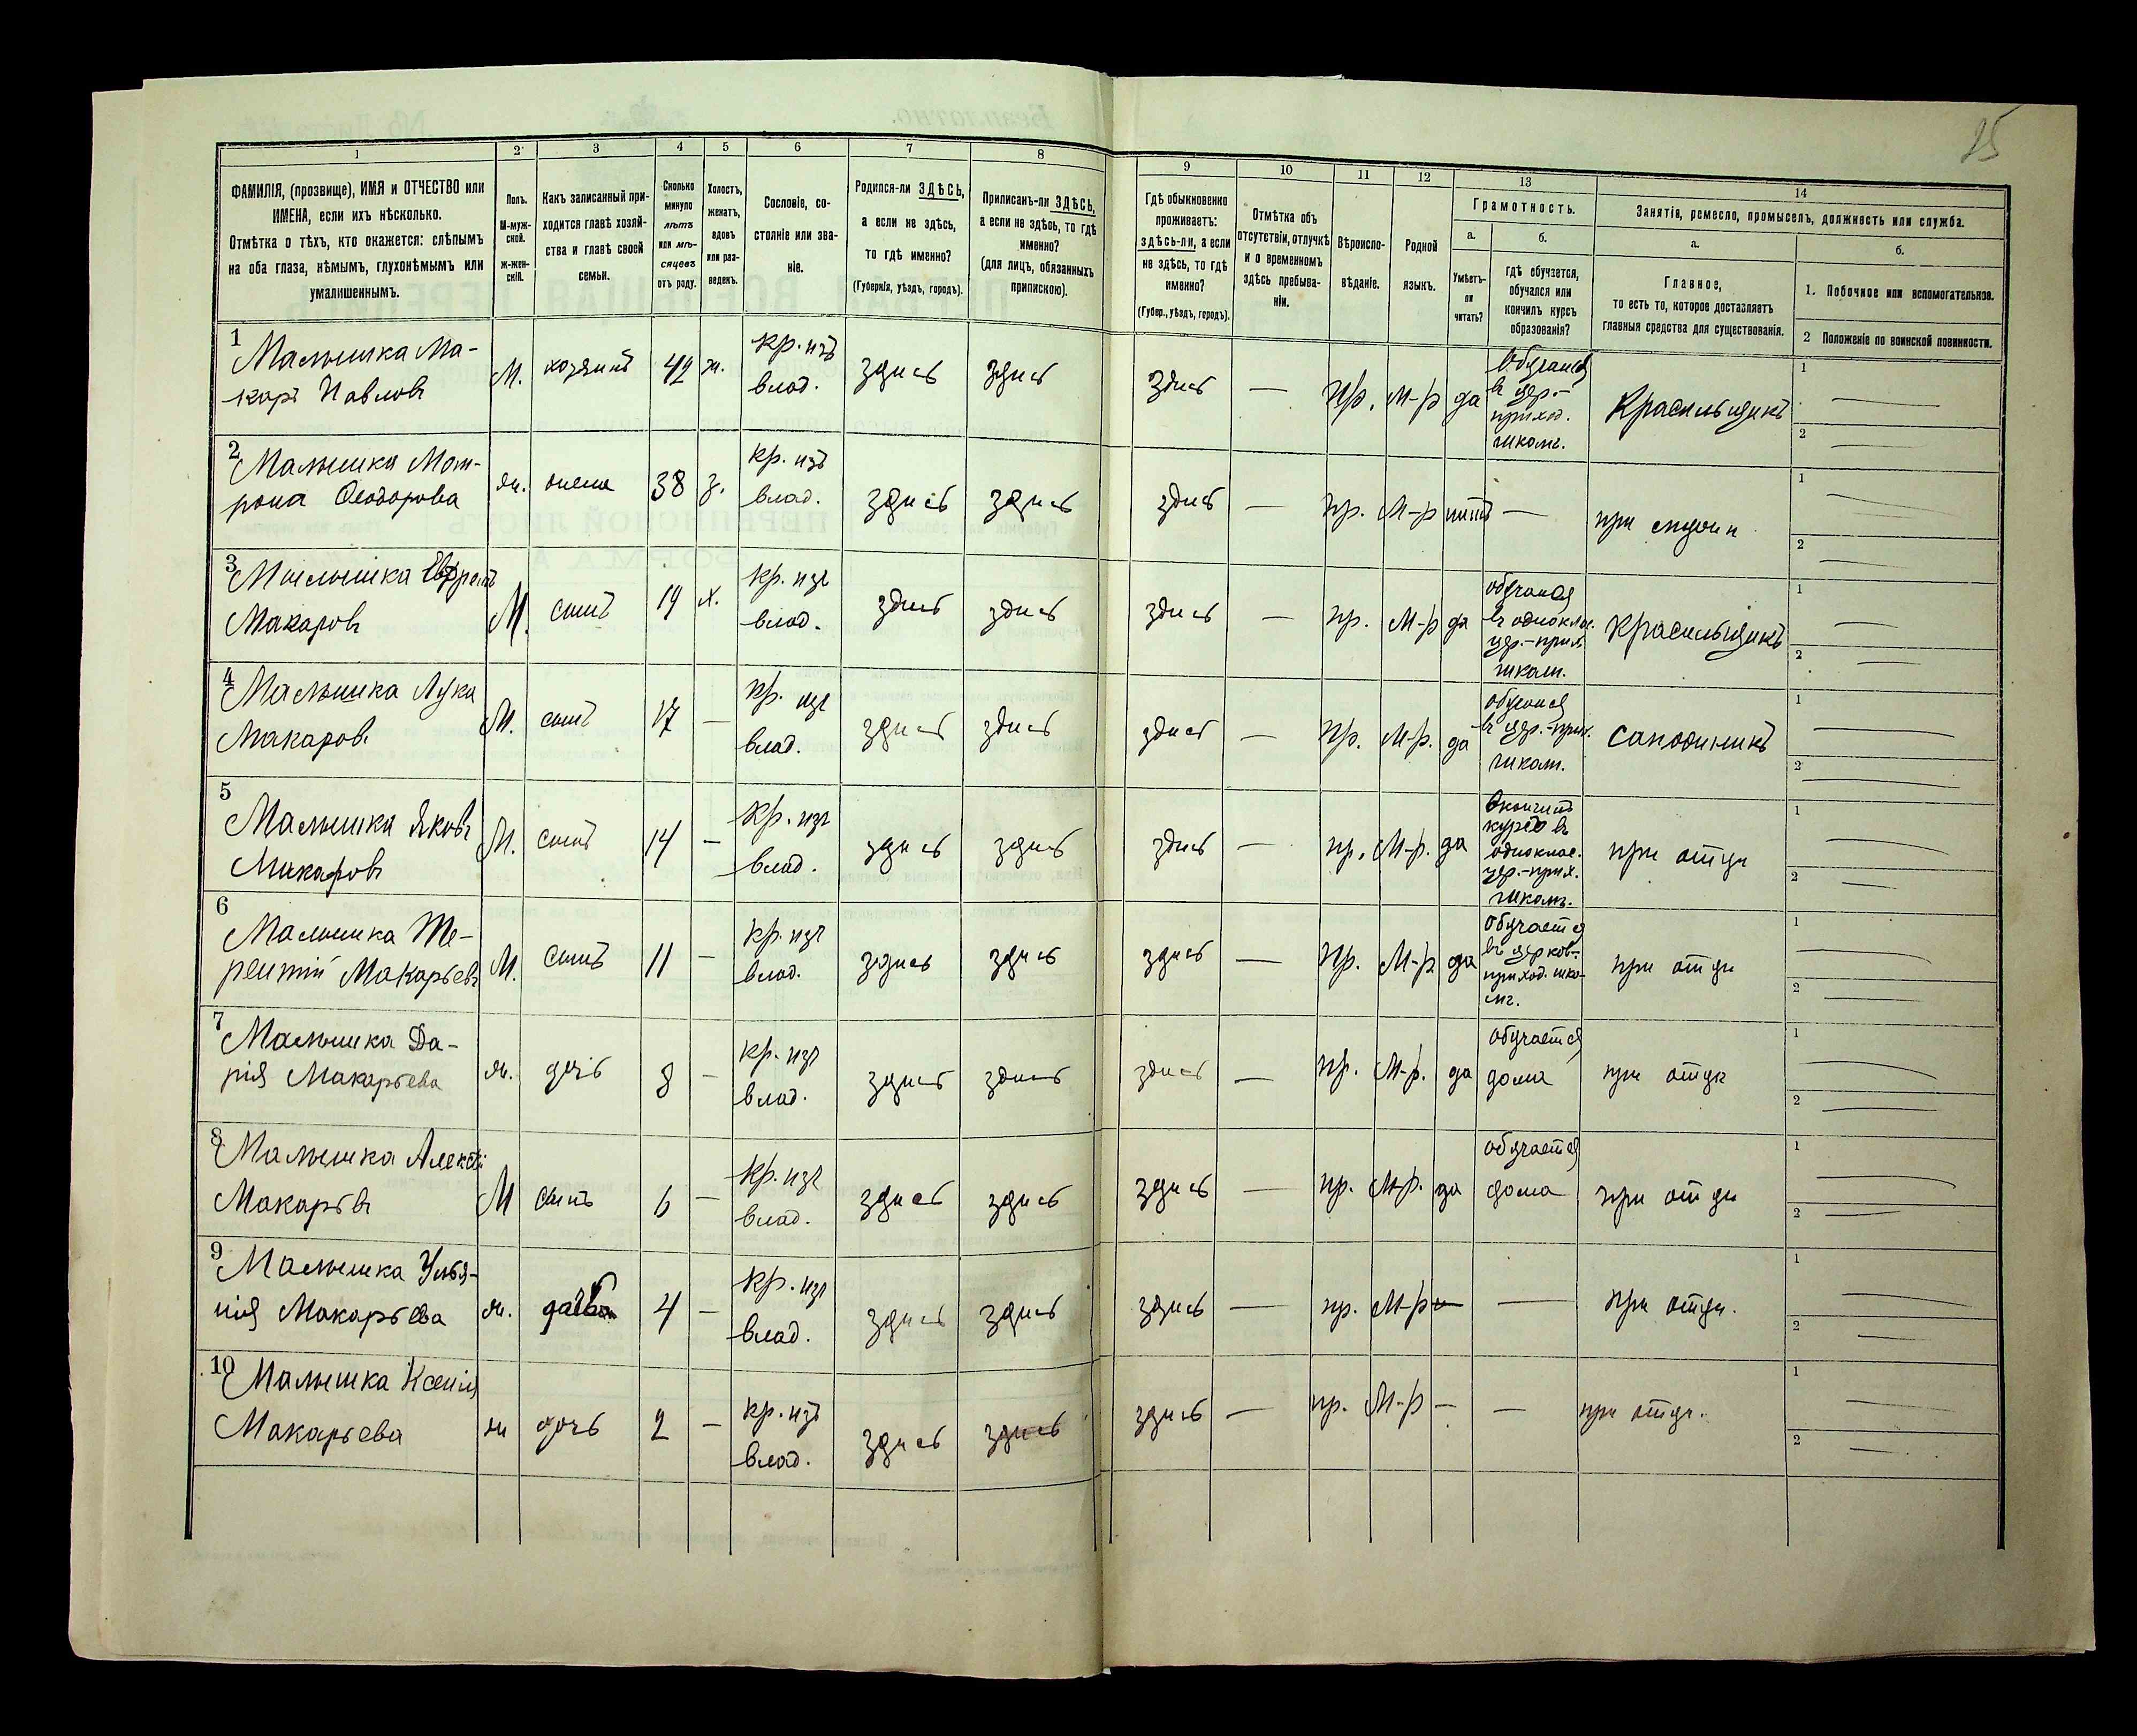 25
1 2 3 4 5 6 7 8 9 10 11 12 13 14
ФАМИЛІЯ, (прозвище), ИМЯ и ОТЧЕСТВО или
ИМЕНА, если ихъ нѣсколько.
Отмѣтка о тѣхъ, кто окажется: слѣпымъ
на оба глаза, нѣмымъ, глухонѣмымъ или
умалишеннымъ.
Полъ.
М-муж-
ской.
ж-жен-
скій.
Какъ записанный при-
ходится главѣ хозяй-
ства и главѣ своей
семьи.
Сколько
минуло
лѣтъ
или мѣ-
сяцевъ
отъ роду.
Холостъ,
женатъ,
вдовъ
или раз-
веденъ.
Сословіе, со-
стояніе или зва-
ніе.
Родился-ли ЗДѢСЬ,
а если не здѣсь,
то гдѣ именно?
(Губернія, уѣздъ, городъ).
Приписанъ-ли ЗДѢСЬ,
а если не здѣсь, то гдѣ
именно?
(для лицъ, обязанныхъ
припискою).
Гдѣ обыкновенно
проживаетъ:
здѣсь-ли, а если
не здѣсь, то гдѣ
именно?
(Губер., уѣздъ, городъ).
Отмѣтка объ
отсутствіи, отлучкѣ
и о временномъ
здѣсь пребыва-
ніи.
Вѣроиспо-
вѣданіе.
Родной
языкъ.
Грамотность.
а.
Умѣетъ-
ли
читать?
б.
гдѣ обучается,
обучался или
кончилъ курсъ
образованія?
Занятія, ремесло, промыселъ, должность или служба.
а.
Главное,
то есть то, которое доставляетъ
главныя средства для существованія.
б.
1. Побочное или вспомогательное.
2 Положеніе по воинской повинности.
1
Малышка Ма-
каръ Павловъ
М. хозяинъ 42 ж.
кр. изъ
влад.
здись здись здись — Пр. М-р да
Обучался
въ цер.-
приход.
школѣ.
Красильщикъ
1 —
2 —
2
Малышка Мот-
рона Ѳеодорова
ж. жена 38 з.
кр. изъ
влад.
здись здись здись — пр. М-р нитъ —
при
1 —
2 —
3
Малышка Ефремъ
Макаровъ
М. сынъ 19 х.
кр. изъ
влад.
здись здись здись — пр. М-р да
обучался
въ одноклас.
цер.-прих.
школѣ.
Красильщикъ
1 —
2 —
4
Малышка Лука
Макаровъ
М. сынъ 17 —
кр. изъ
влад.
здись здись здись — Пр. М-р. да
обучался
въ цер.-прих.
школѣ.
Сапожникъ
1 —
2 —
5
Малышка Яковъ
Макаровъ
М. сынъ 14 —
кр. изъ
влад.
здись здись здись — пр. М-р. да
Окончилъ
курсъ въ
одноклас.
цер.-прих.
школѣ.
при отци
1 —
2 —
6
Малышка Те-
рентій Макарьевъ
М. сынъ 11 —
кр. изъ
влад.
здись здись здись — Пр. М-р да
Обучается
въ церков-
приход. шко-
лѣ.
при отци
1 —
2 —
7
Малышка Да-
рія Макарьева
ж. дочь 8 —
кр. изъ
влад.
здись здись здись — пр. М-р. да
обучается
дома
при отци
1 —
2 —
8
Малышка Алексій
Макарьевъ
М сынъ 6 —
кр. изъ
влад.
здись здись здись — пр. М-р. да
обучается
дома
при отци
1 —
2 —
9
Малышка Улья-
нія Макарьева
ж. дочь 4 —
кр. изъ
влад.
здись здись здись — пр. М-р — —
при отци.
1 —
2 —
10
Малышка Ксенія
Макарьева
ж дочь 2 —
кр. изъ
влад.
здись здись здись — пр. М-р — —
при отци.
1 —
2 —